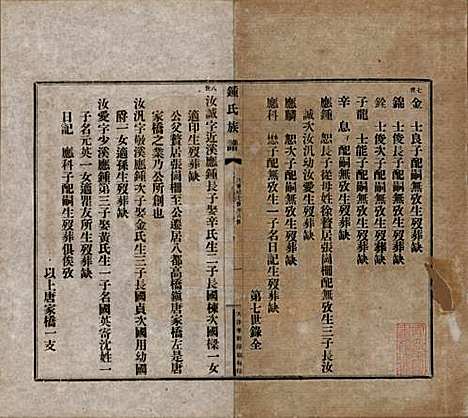 七世
金 士良子配嗣無攷生歿葬缺
錦 士俊長子配嗣無攷生歿葬缺
銓 士俊次子配嗣無攷生歿葬缺
子龍 士能子配嗣無攷生歿葬缺
辛 息子配嗣無攷生歿葬缺
應鍾 恕長子從母姓徐贅居張崗柵配無攷生三子長汝
誠次汝元幼汝愛生歿葬缺
應麟 恕次子配嗣無攷生歿葬缺
應科 懋子配無攷生一子名日記生歿葬缺
第七世錄全
鍾氏族譜
八世
汝誠字近溪應鍾長子娶辛氏生二子長國棟次國樑一女
適印生歿葬缺
公父贅居張崗柵至公遷居八都高橋鎮唐家橋左是唐
家橋之業乃公所創也
汝元字敬溪應鍾次子娶金氏生三子長國貞次國用幼國
爵一女適孫生歿葬缺
汝愛字少溪應鍾第三子娶黃氏生一子名國英寄沈姓一
子名元英一女適瞿友所生歿葬缺
日記 應科子配嗣生歿葬俱俟攷
以上唐家橋一支